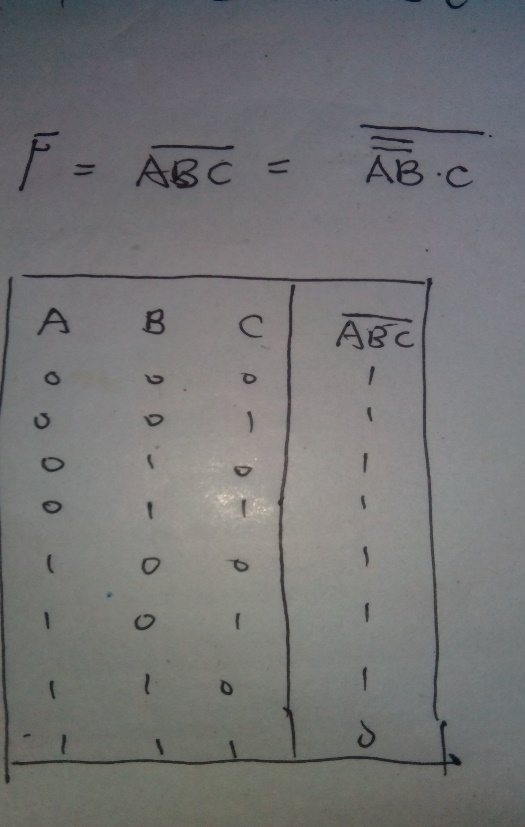 F̄ = \overline{ABC} = \overline{\overline{\overline{AB}}·C}
A B C \overline{ABC}
0 0 0 1
0 0 1 1
0 1 0 1
0 1 1 1
1 0 0 1
1 0 1 1
1 1 0 1
1 1 1 0